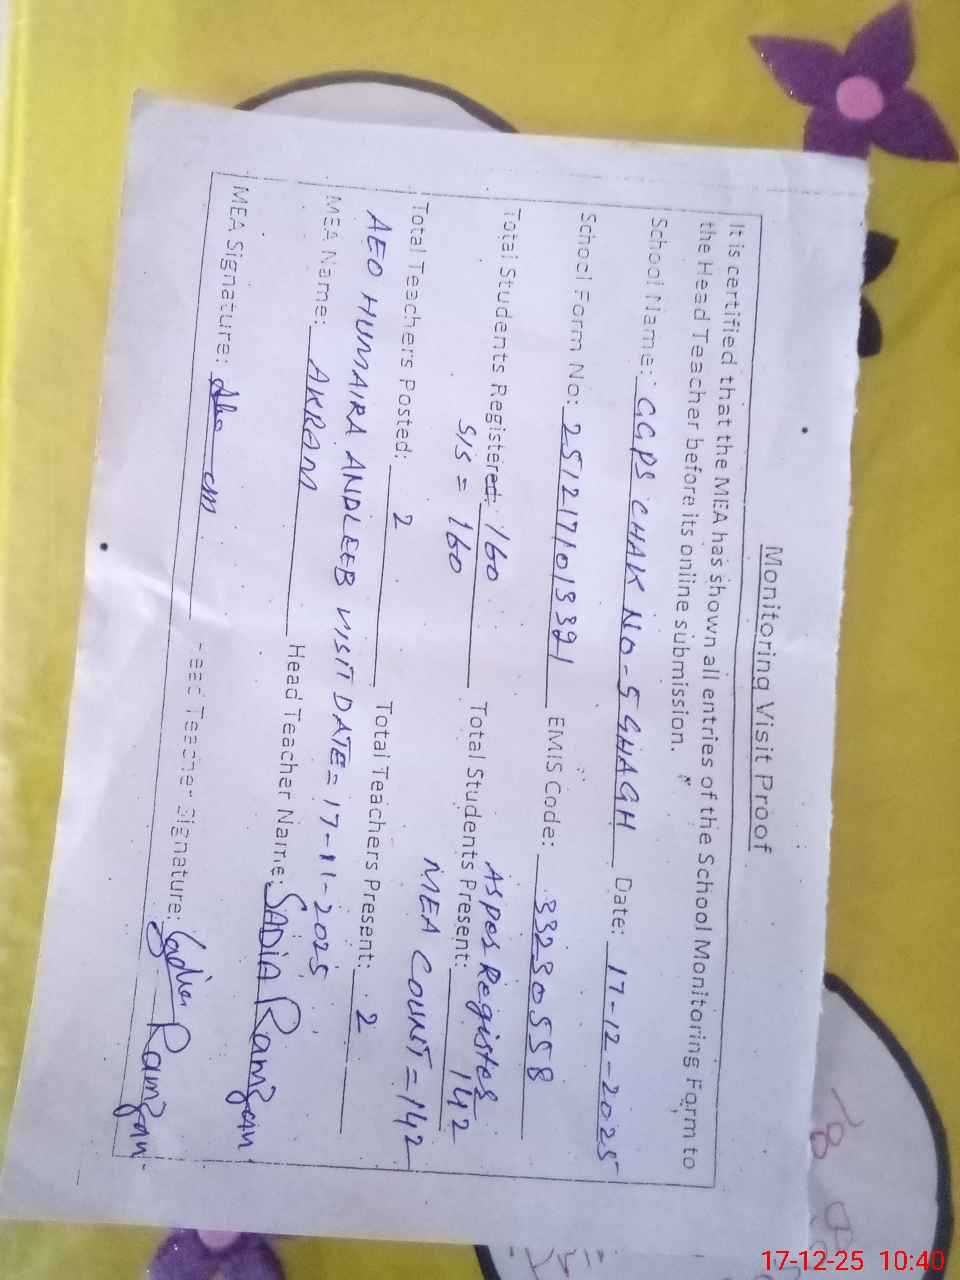 Monitoring Visit Proof
It is certified that the MEA has shown all entries of the School Monitoring Form to
the Head Teacher before its online submission.
School Name: GGPS CHAK NO-5 GHAGH Date: 17-12-2025
School Form No: 2512171013391 EMIS Code: 33230558
As per Register
Total Students Registered: 160 Total Students Present: 142
SIS = 160 MEA COUNT = 142
Total Teachers Posted: 2 Total Teachers Present: 2
AEO HUMAIRA ANDLEEB VISIT DATE = 17-11-2025
MEA Name: AKRAM Head Teacher Name: SADIA Ramzan
MEA Signature: Head Teacher Signature: Sadia Ramzan
17-12-25 10:40